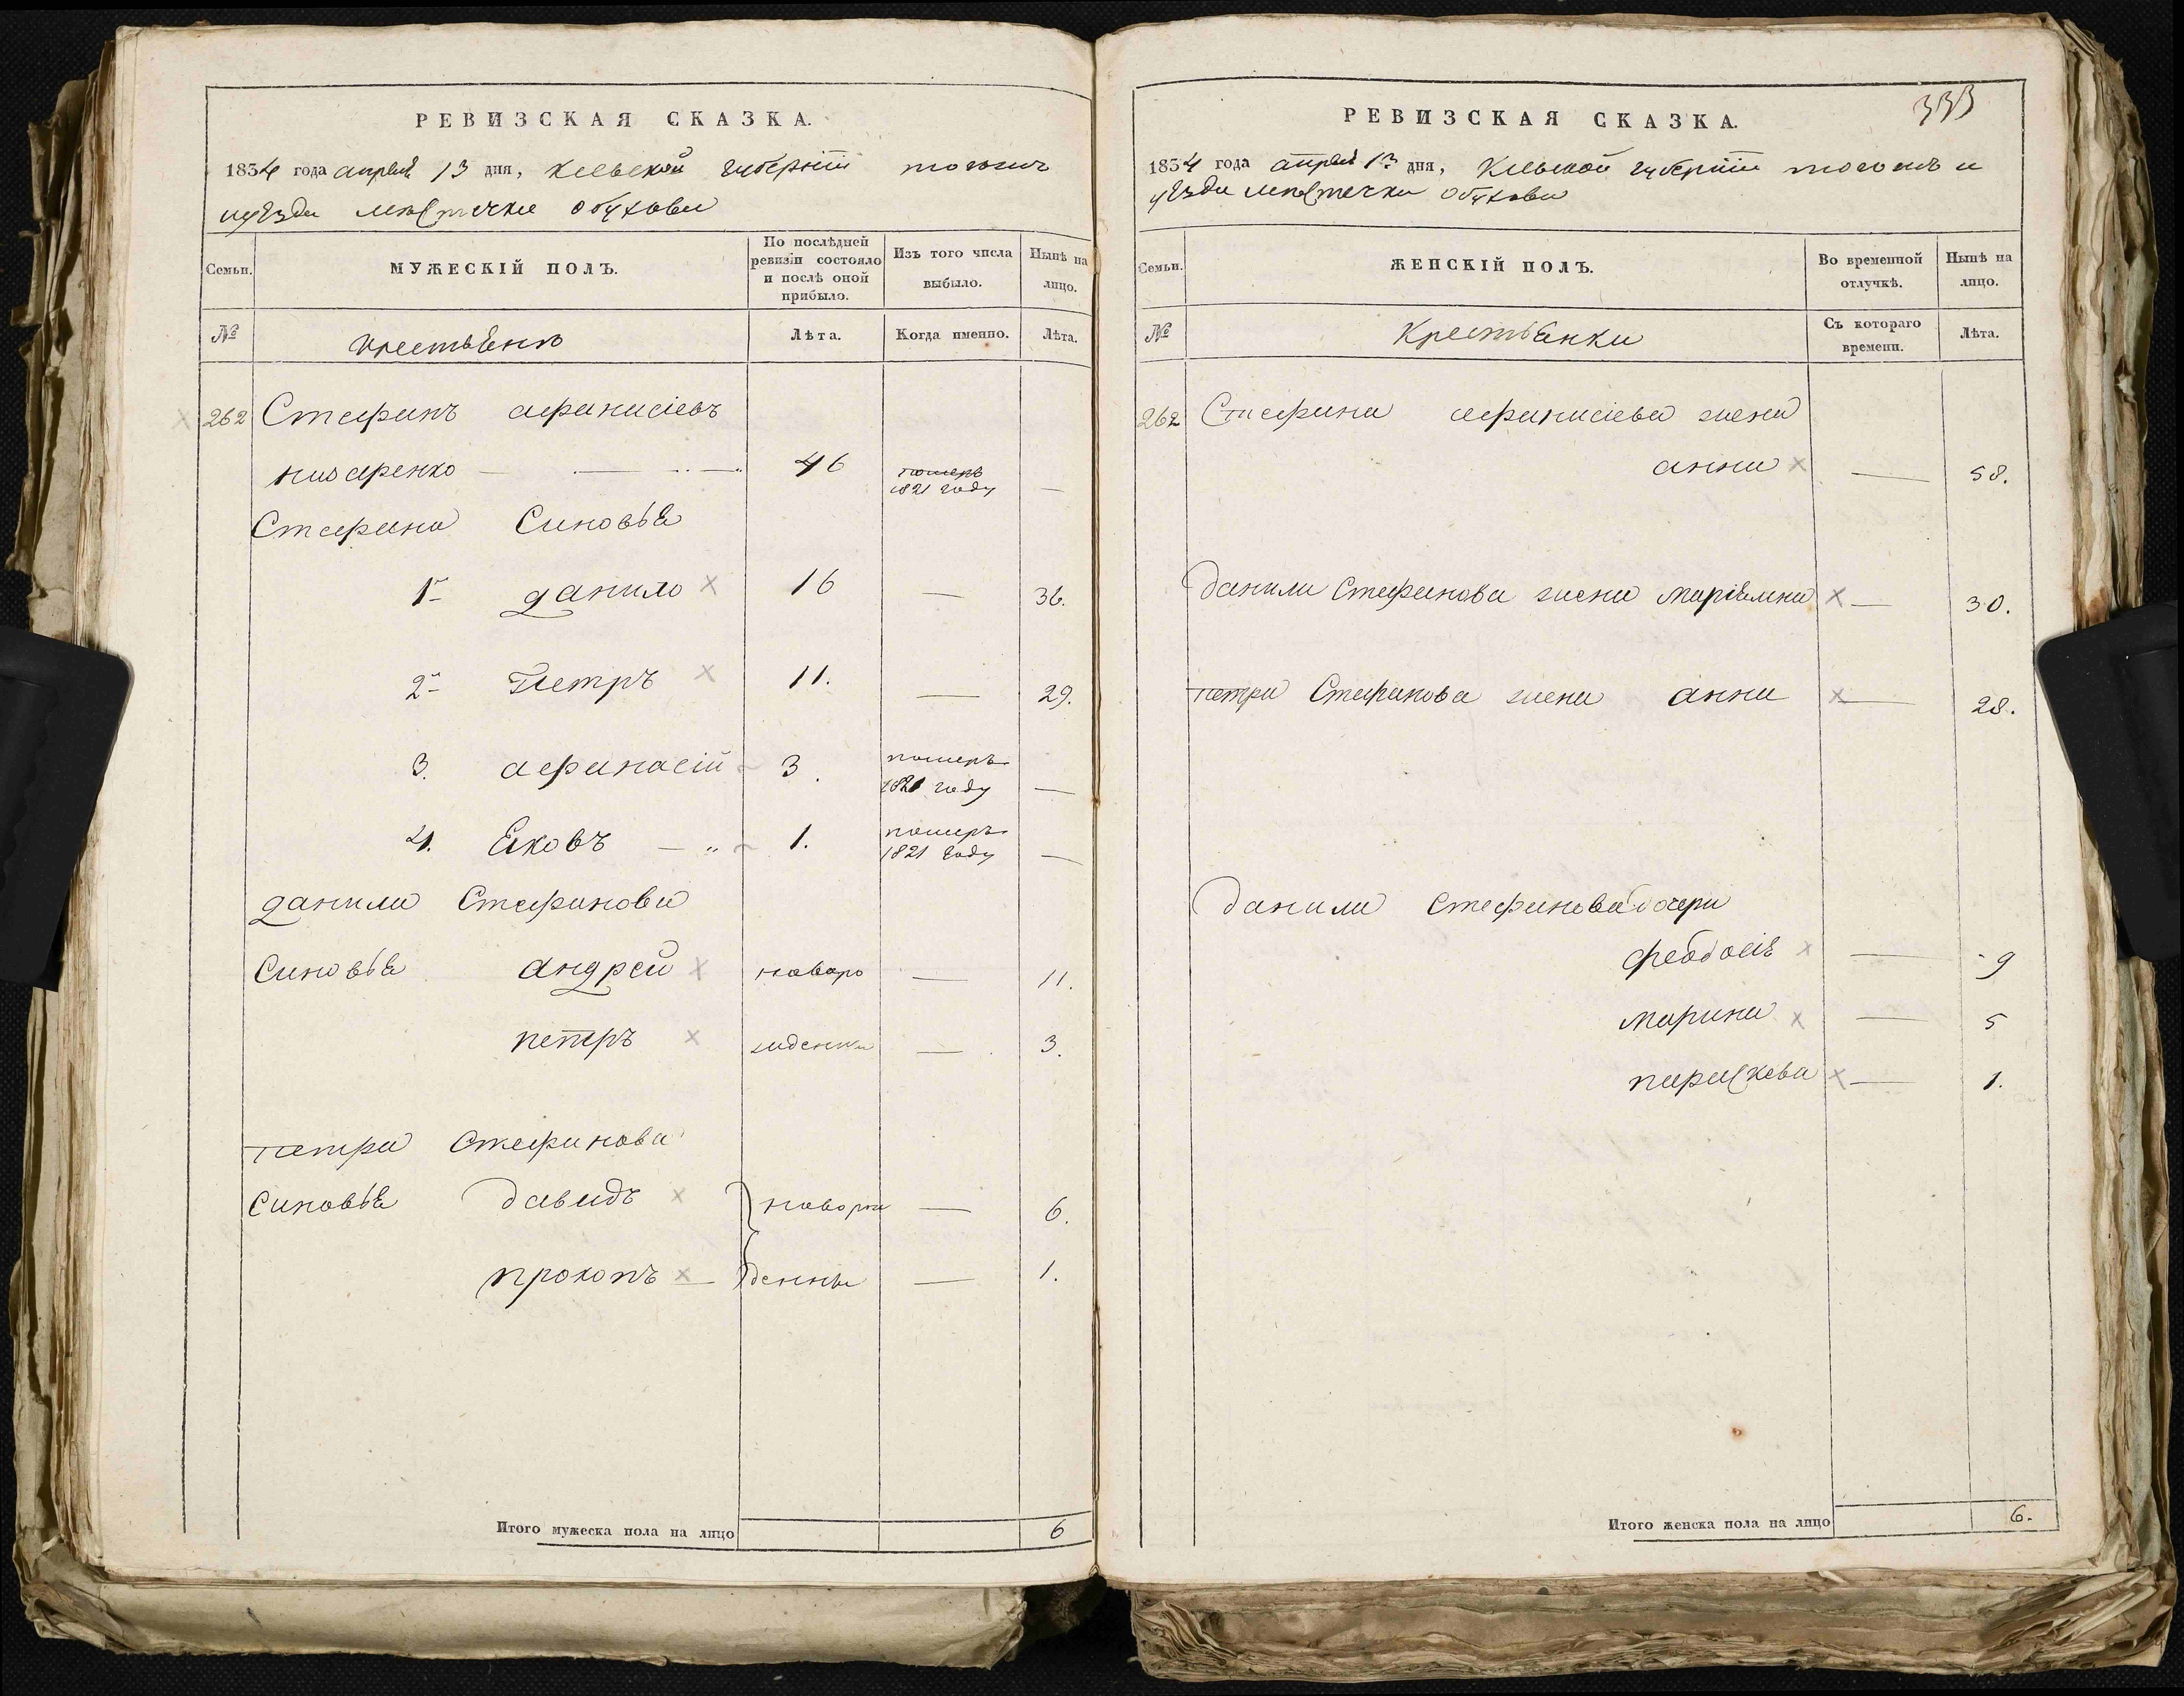 РЕВИЗСКАЯ СКАЗКА.
1834 года апреля 13 дня, Кіевской губерніи тогожъ
и уѣзда местечка обухова
Семьи.
МУЖЕСКІЙ ПОЛЪ.
По послѣдней ревизіи состояло и послѣ оной прибыло.
Изъ того числа выбыло.
Нынѣ на лицо.
№
крестьяне
Лѣта.
Когда именно.
Лѣта.
262 Стефанъ афанасіевъ
46 померъ 1821 году —
Стефана Синовья
1й данило 16 — 36.
2й Петръ 11. — 29.
3. афанасій 3. померъ 1821 году —
4. Яковъ — 1. померъ 1821 году —
данила Стефанова
Синовья андрей новоро — 11.
петръ жденни — 3.
петра Стефанова
Синовья давидъ новорж — 6.
прокопъ — денны — 1.
Итого мужеска пола на лицо 6
333
РЕВИЗСКАЯ СКАЗКА.
1834 года апреля 13 дня, Кіевской губерніи тогожъ и
уѣзда местечка Обухова
Семьи.
ЖЕНСКІЙ ПОЛЪ.
Во временной отлучкѣ.
Нынѣ на лицо.
№
Крестьянки
Съ котораго времени.
Лѣта.
262 Стефана афанасіева жена
анна — 58.
данила Стефанова жена маріямна — 30.
петра Стефанова жена анна — 28.
данила Стефанова дочери
феодосія — 9
марина — 5
параскева — 1.
Итого женска пола на лицо 6.